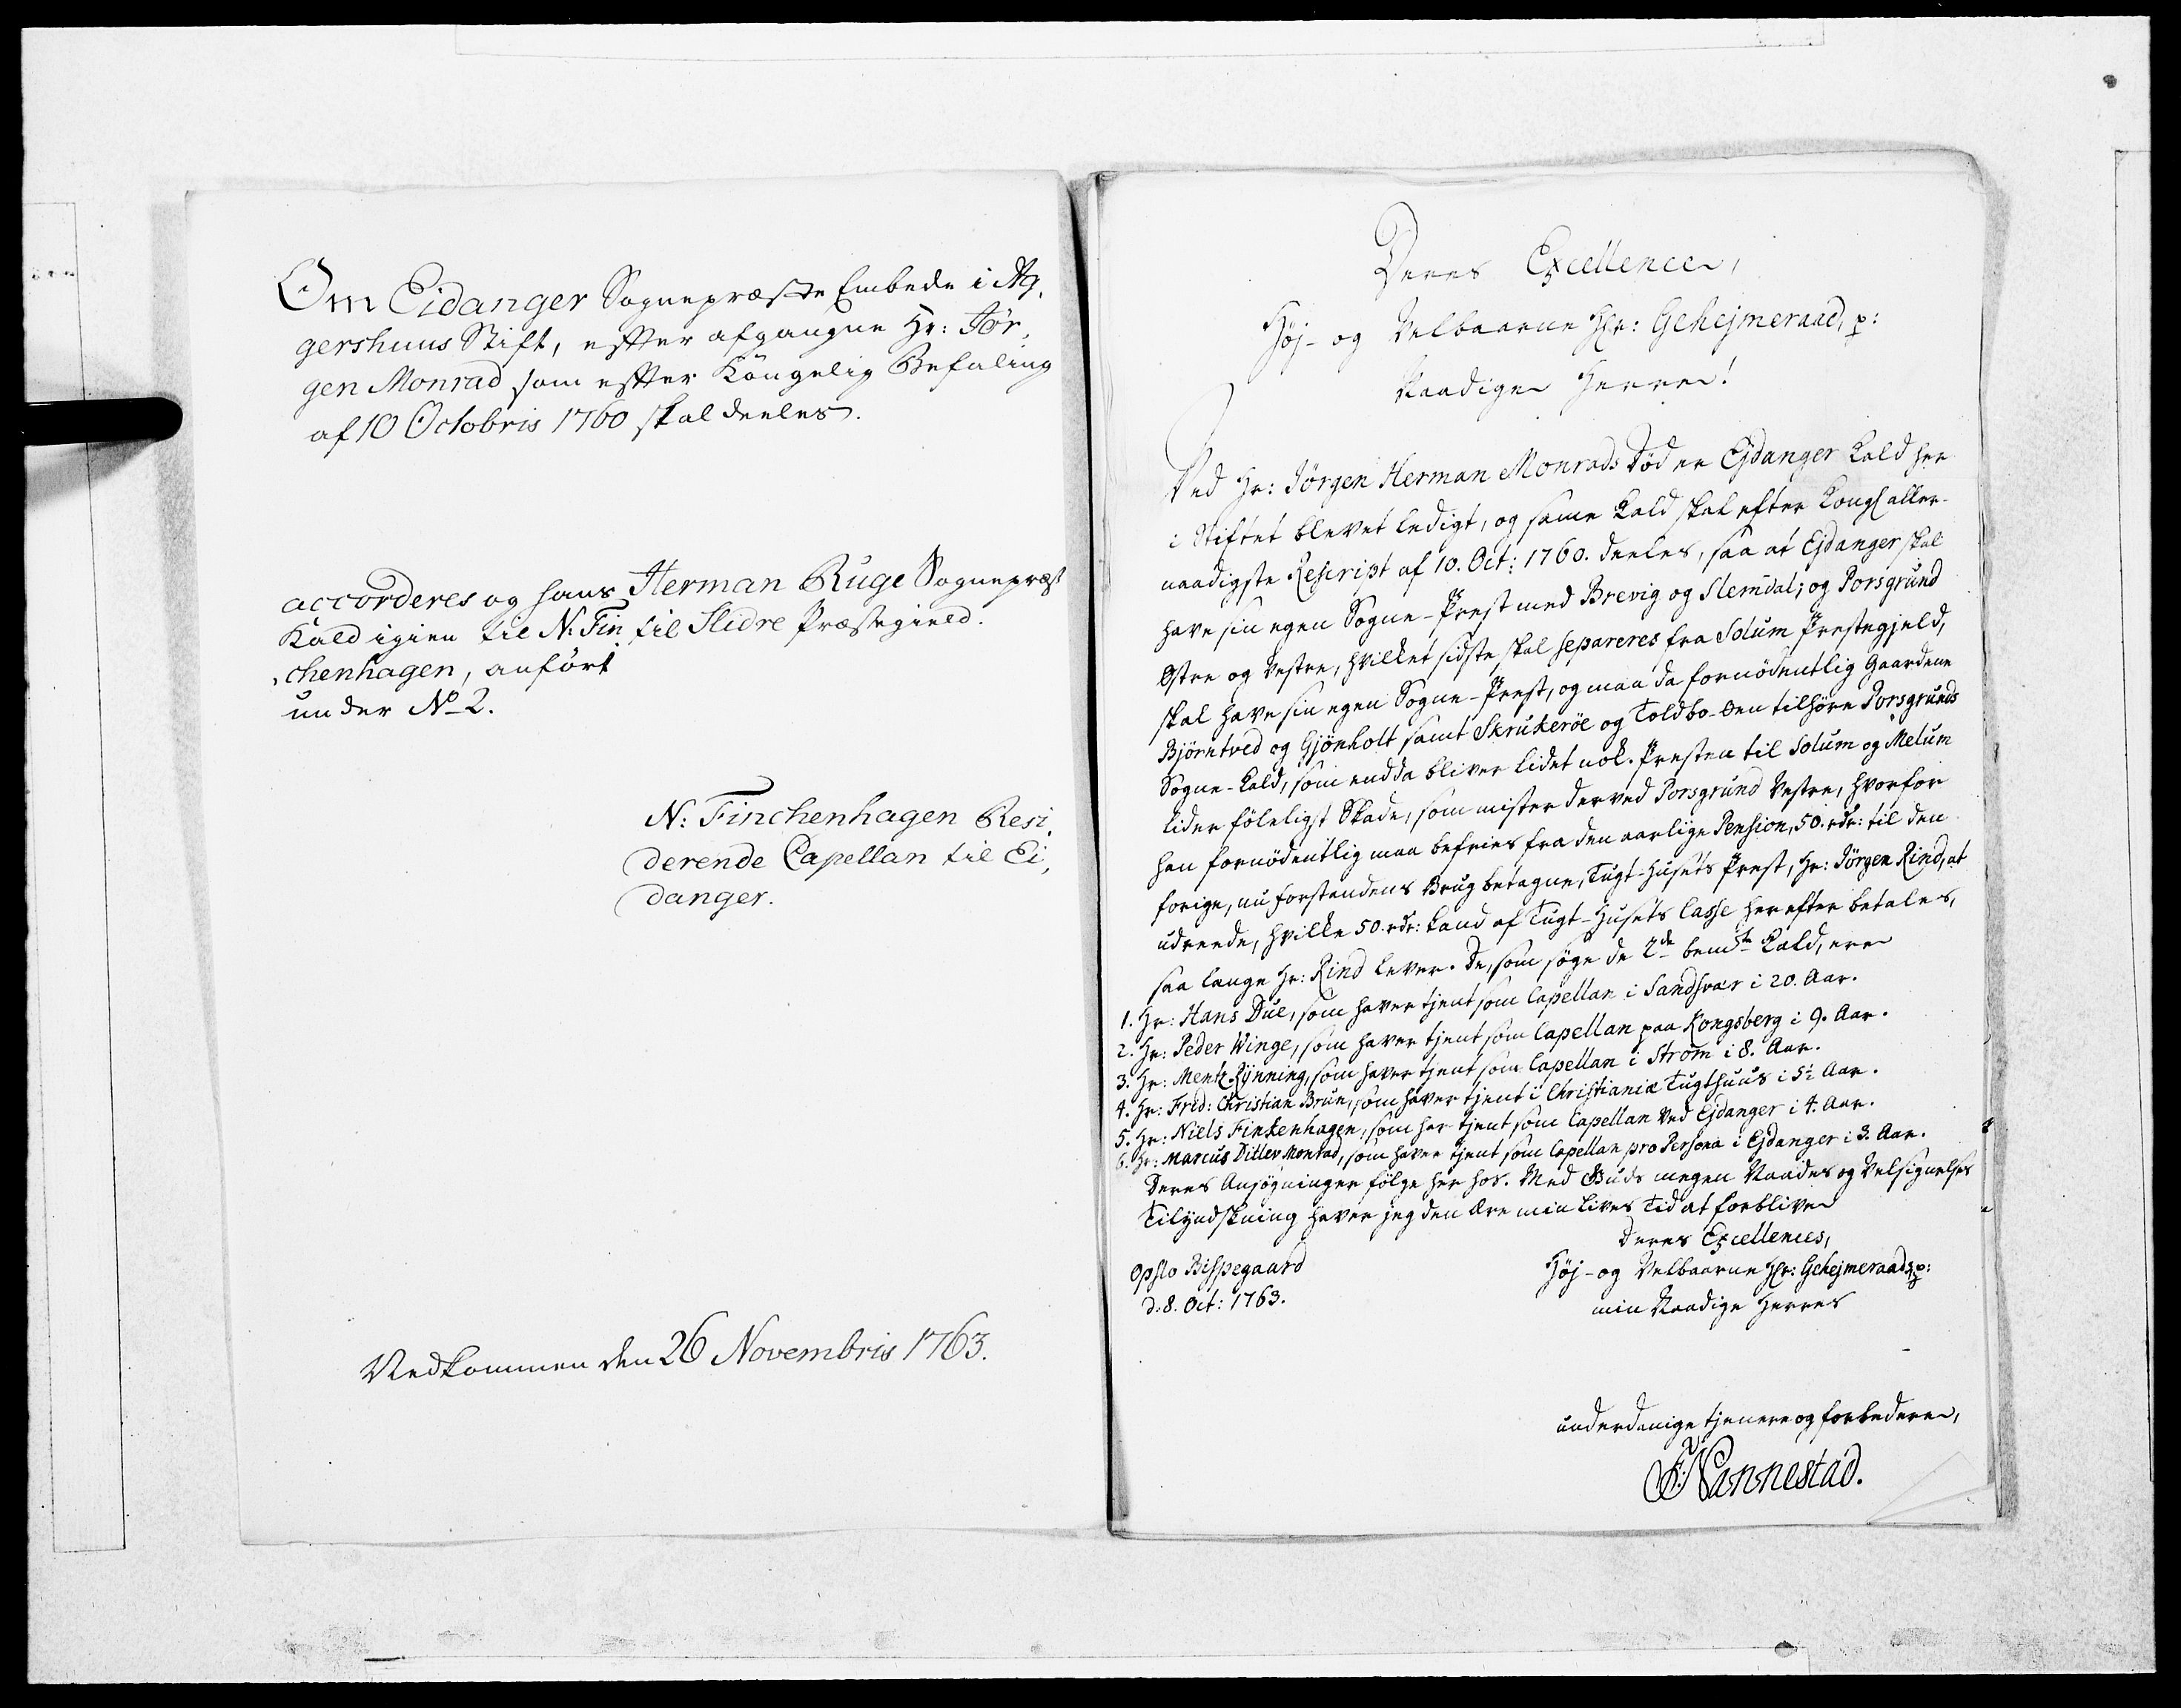 Om Eidanger Sognepræste Embede i Ag,
gershuus Stift, efter afgangne Hr: Jør,
gen Monrad som efter Kongelig Befaling
af 10 Octobris 1760 skal deeles.
accorderes og hans
Kald igien til N: Fin
chenhagen, anført
under No 2.
Herman Ruge Sognepræst
til Slidre Præstegield.
N: Finchenhagen Resi,
derende Capellan til Ei,
danger.
Vedkommen den 26 Novembris 1763.
Deres Excellence,
Høj- og Velbaarne Hr: Gehejmeraad, p:
Naadige Herre!
Ved Hr: Jørgen Herman Monrads Død er Ejdanger Kald her
i Stiftet blevet ledigt, og samme Kald skal efter Kongl aller-
naadigste Rescript af 10. Oct: 1760. deeles, saa at Ejdanger skal
have sin egen Sogne-Prest med Brevig og Slemdal; og Porsgrund
Østre og Vestre, hvilket sidste skal separeres fra Solum Prestegjeld,
skal have sin egen Sogne-Prest, og maa da fornødentlig Gaardene
Bjørntved og Gjønholt samt Skrukerøe og Toldbo-den tilhøre Porsgrunds
Sogne-Kald, som endda bliver lidet nok. Presten til Solum og Melum
lider føleligst Skade, som mister derved Porsgrund Vestre, hvorfor
han fornødentlig maa befries fra den aarlige Pension, 50. rdr: til den
forige, nu forstandens Brug betagne, Tugt-Husets Prest, Hr: Jørgen Rind, at
udreede, hvilke 50. rdr: kand af Tugt-Husets Casse herefter betales,
saa lange Hr: Rind lever. De, som søge de 2de bemte Kald, ere
1. Hr: Hans Due, som haver tjent som Capellan i Sandsvær i 20. Aar.
2. Hr: Peder Winge, som haver tjent som Capellan paa Kongsberg i 9. Aar.
3. Hr: Mentz Rynning, som haver tjent som Capellan i Strøm i 8. Aar.
4. Hr: Frid: Christian Brun, som haver tjent i Christianiæ Tugthuus i 5½ Aar.
5. Hr: Niels Finkenhagen, som har tjent som Capellan ved Ejdanger i 4. Aar.
6. Hr: Marcus Ditlev Monrad, som haver tjent som Capellan pro Persona i Ejdanger i 3. Aar.
Deres Ansøgninger følge her hos. Med Guds megen Naades og Velsignelses
Tilyndskning haver jeg den Ære min Lives Tid at forblive
Deres Excellences,
Høj- og Velbaarne Hr: Gehejmeraads, p:
min Naadige Herres
Opslo Bispegaard
d. 8. Oct: 1763.
underdanige tjenere og forbedere,
F: Nannestad.